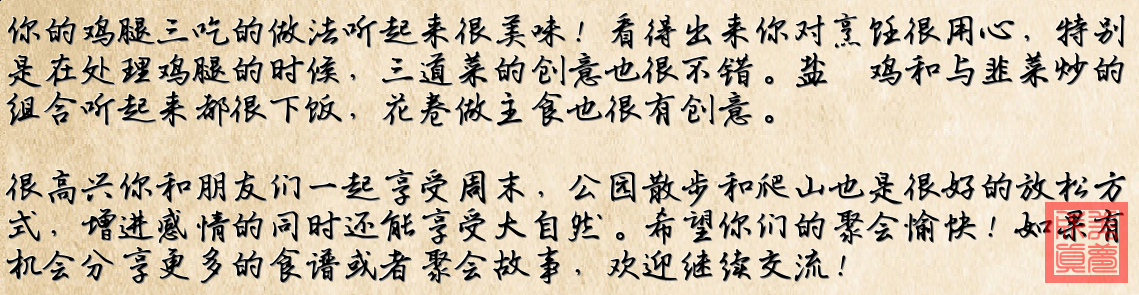 你的鸡腿三吃的做法听起来很美味！看得出来你对烹饪很用心，特别
是在处理鸡腿的时候，三道菜的创意也很不错。盐　鸡和与韭菜炒的
组合听起来都很下饭，花卷做主食也很有创意。
很高兴你和朋友们一起享受周末，公园散步和爬山也是很好的放松方
式，增进感情的同时还能享受大自然。希望你们的聚会愉快！如果有
机会分享更多的食谱或者聚会故事，欢迎继续交流！